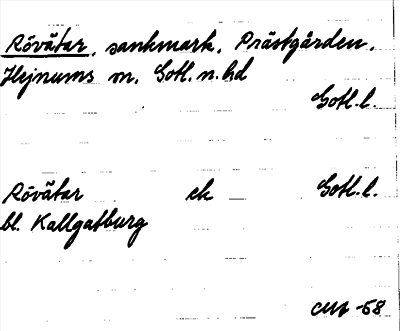 Rövätar, sankmark, Prästgården,
Hejnums sn, Gotl. n. hd
Gotl. l.
Rövätar ek Gotl. l.
bl. Kallgatburg
-58